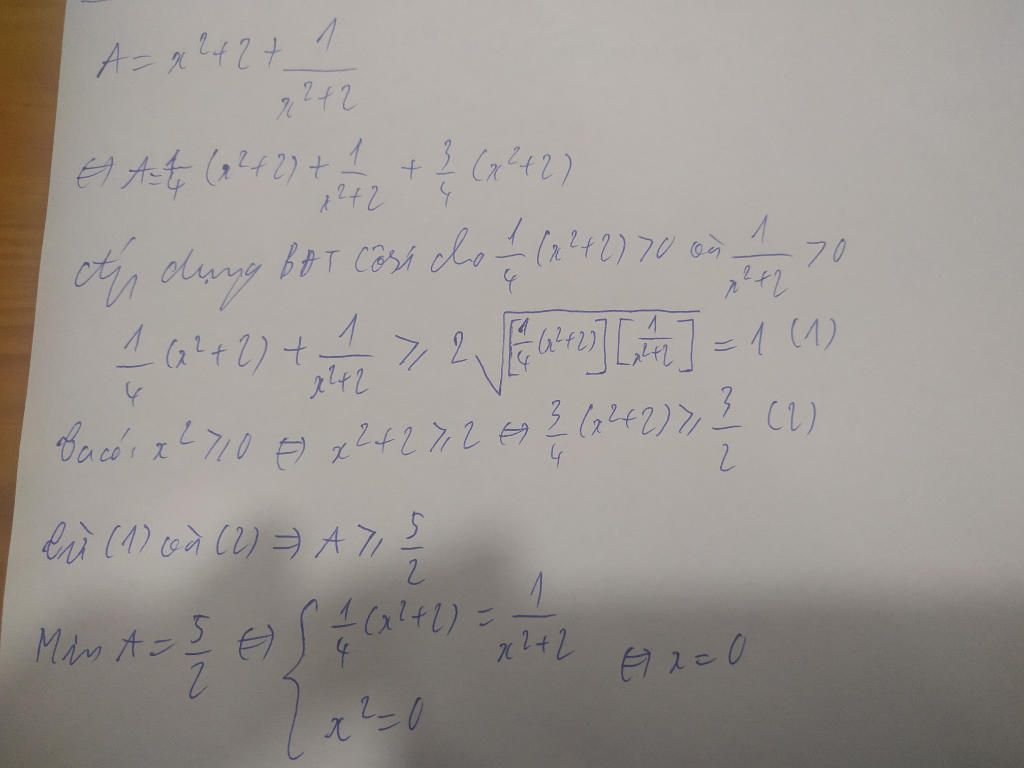 A = x²+2 + 1/(x²+2)
⇔ A = 1/4 (x²+2) + 1/(x²+2) + 3/4 (x²+2)
Áp dụng BĐT Côsi do 1/4 (x²+2) > 0 và 1/(x²+2) > 0
1/4 (x²+2) + 1/(x²+2) ⩾ 2 √([1/4 (x²+2)] [1/(x²+2)]) = 1 (1)
Ta có: x² ⩾ 0 ⇔ x²+2 ⩾ 2 ⇔ 3/4 (x²+2) ⩾ 3/2 (2)
Từ (1) và (2) ⇒ A ⩾ 5/2
Min A = 5/2 ⇔ { 1/4 (x²+2) = 1/(x²+2) ⇔ x = 0
x² = 0